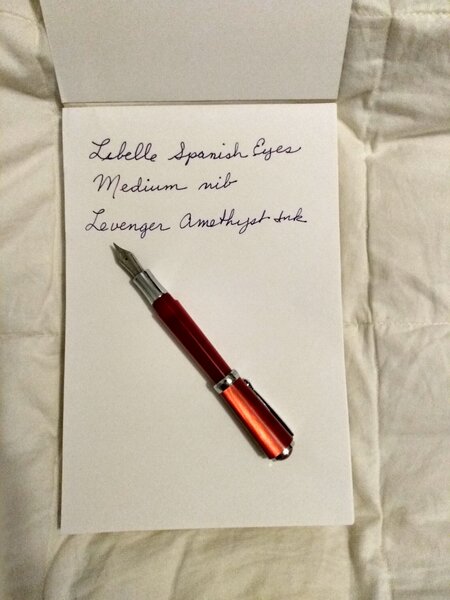 Libelle Spanish Eyes
Medium nib
Levenger Amethyst Ink